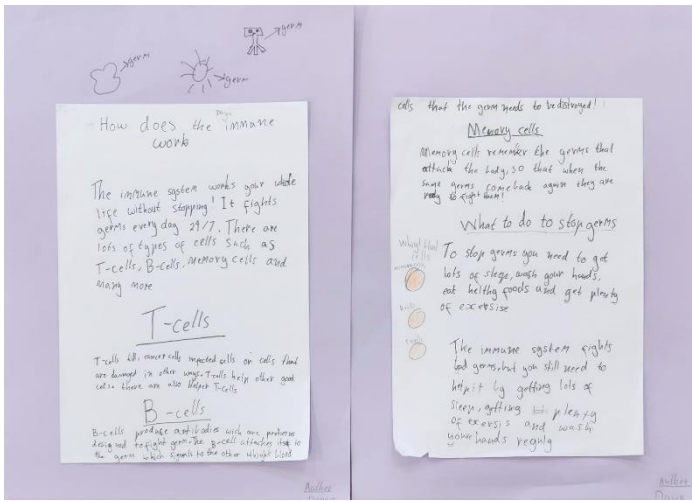 germ
germ
germ
How does the immune
work
The immune system works your whole
life without stopping! It fights
germs every day 24/7. There are
lots of types of cells such as
T-cells, B-cells, memory cells and
many more
T-cells
T-cells kill cancer cells impected cells or cells that
are damaged in other ways. T-cells help other good
cells. there are also Helper T-cells
B-cells
B-cells produce antibodies wich are proteins
designed to fight germ. The B-cell attaches to
the germ which signals to the other whight blood
Author
cells that the germ needs to be distroyed!
Memory cells
Memory cells remember the germs that
attack the body, so that when the
same germs come back again they are
redy to fight them!
What to do to stop germs
Whight blood
cells
To stop germs you need to get
lots of sleep, wash your hands,
eat helthy foods and get plenty
of exersise
The immune system fights
bad germs but you still need to
help it by getting lots of
sleep, getting plenty
of exersis and wash
your hands
Author